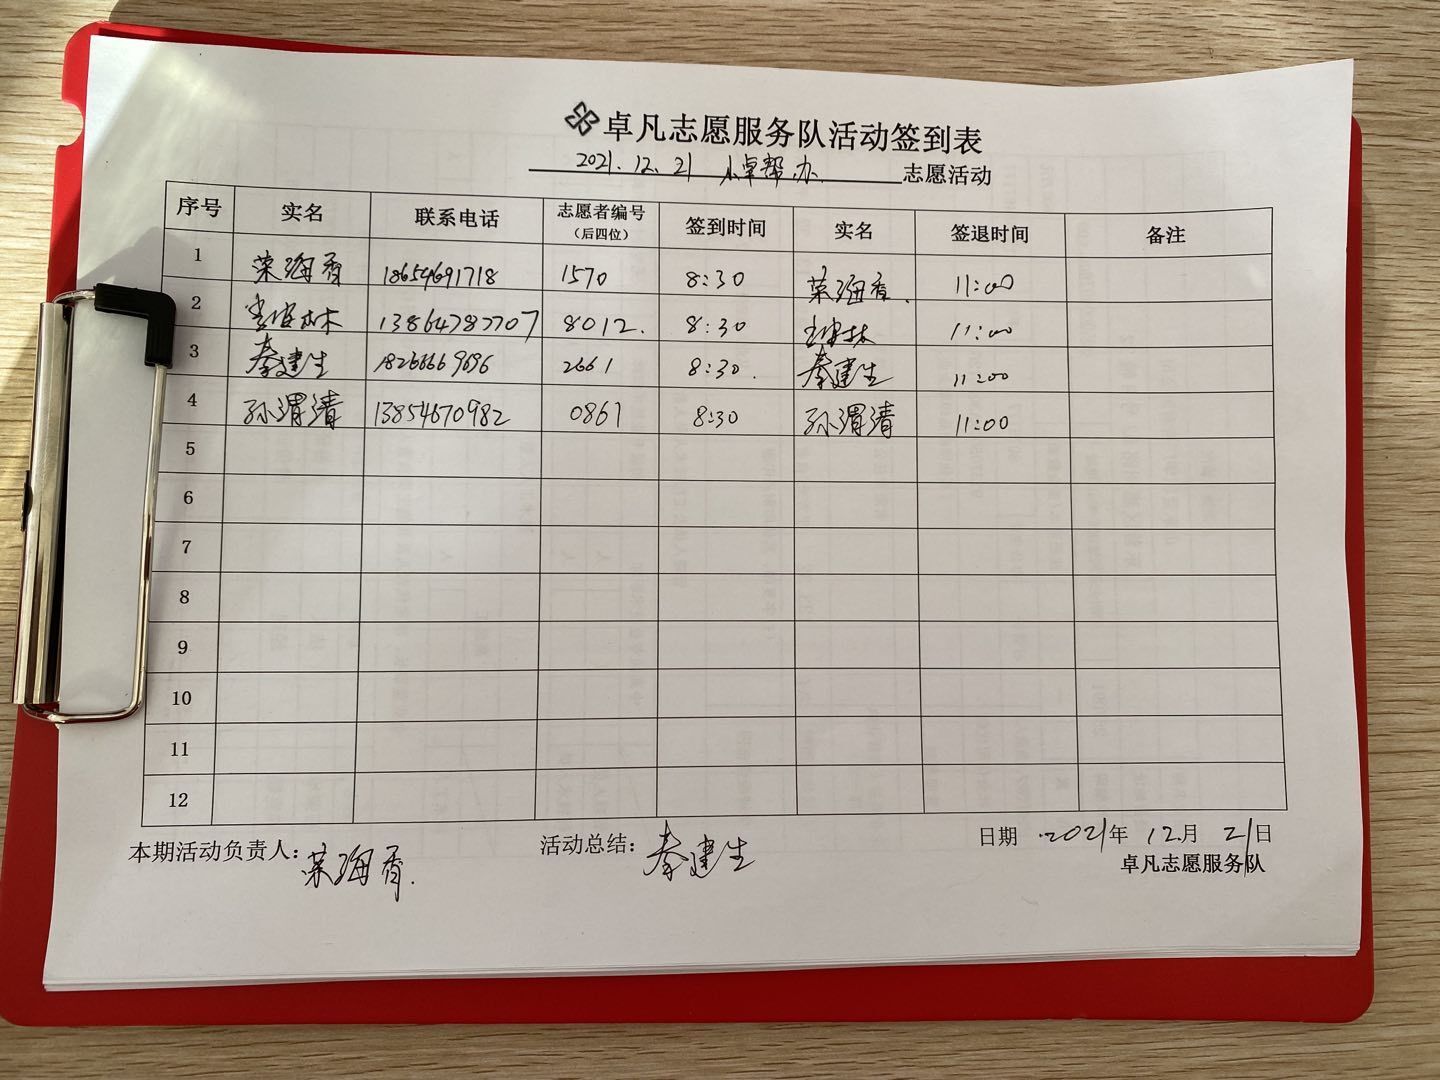 卓凡志愿服务队活动签到表
2021.12.21 小卓帮办 志愿活动
序号 实名 联系电话 志愿者编号（后四位） 签到时间 实名 签退时间 备注
1 荣海香 18654691718 1570 8:30 荣海香. 11:00
2 13864787707 8012. 8:30 11:00
3 秦建生 18266669696 2661 8:30. 秦建生 11:00
4 孙渭清 13854670982 0861 8:30 孙渭清 11:00
5
6
7
8
9
10
11
12
本期活动负责人：荣海香. 活动总结：秦建生 日期 2021年 12月 21日
卓凡志愿服务队